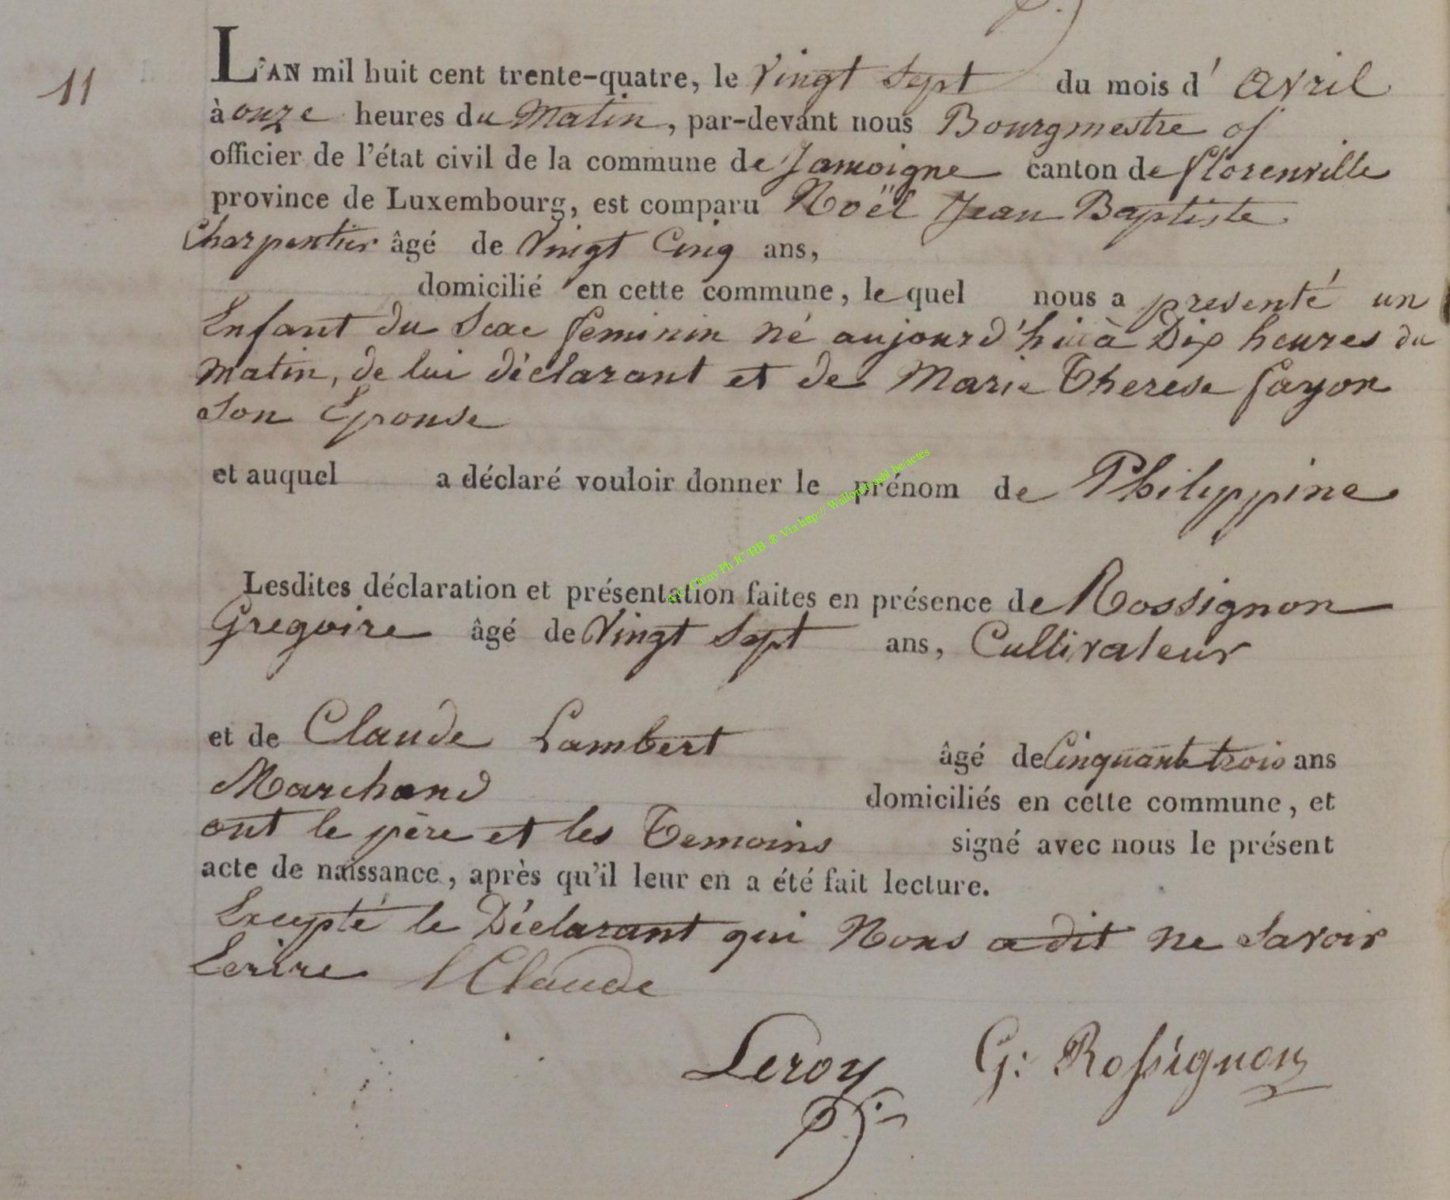 11
L'AN mil huit cent trente-quatre, le Vingt Sept du mois d' Avril
à onze heures du Matin, par-devant nous Bourgmestre of
officier de l'état civil de la commune de Jamoigne canton de florenville
province de Luxembourg, est comparu Noël Jean Baptiste
Charpentier âgé de Vingt Cinq ans,
domicilié en cette commune, le quel nous a presenté un
Enfant du Sexe feminin né aujourd'hui à Dix heures du
Matin, de lui déclarant et de Marie Therese fayon
Son Epouse
et auquel a déclaré vouloir donner le prénom de Philippine
Lesdites déclaration et présentation faites en présence de Rossignon
Gregoire âgé de Vingt Sept ans, Cultivateur
et de Claude Lambert âgé de Cinquante trois ans
Marchand domiciliés en cette commune, et
ont le père et les Temoins signé avec nous le présent
acte de naissance, après qu'il leur en a été fait lecture.
Excepté le Déclarant qui Nous a dit ne Savoir
Ecrire LClaude
Leroy G: Rossignon